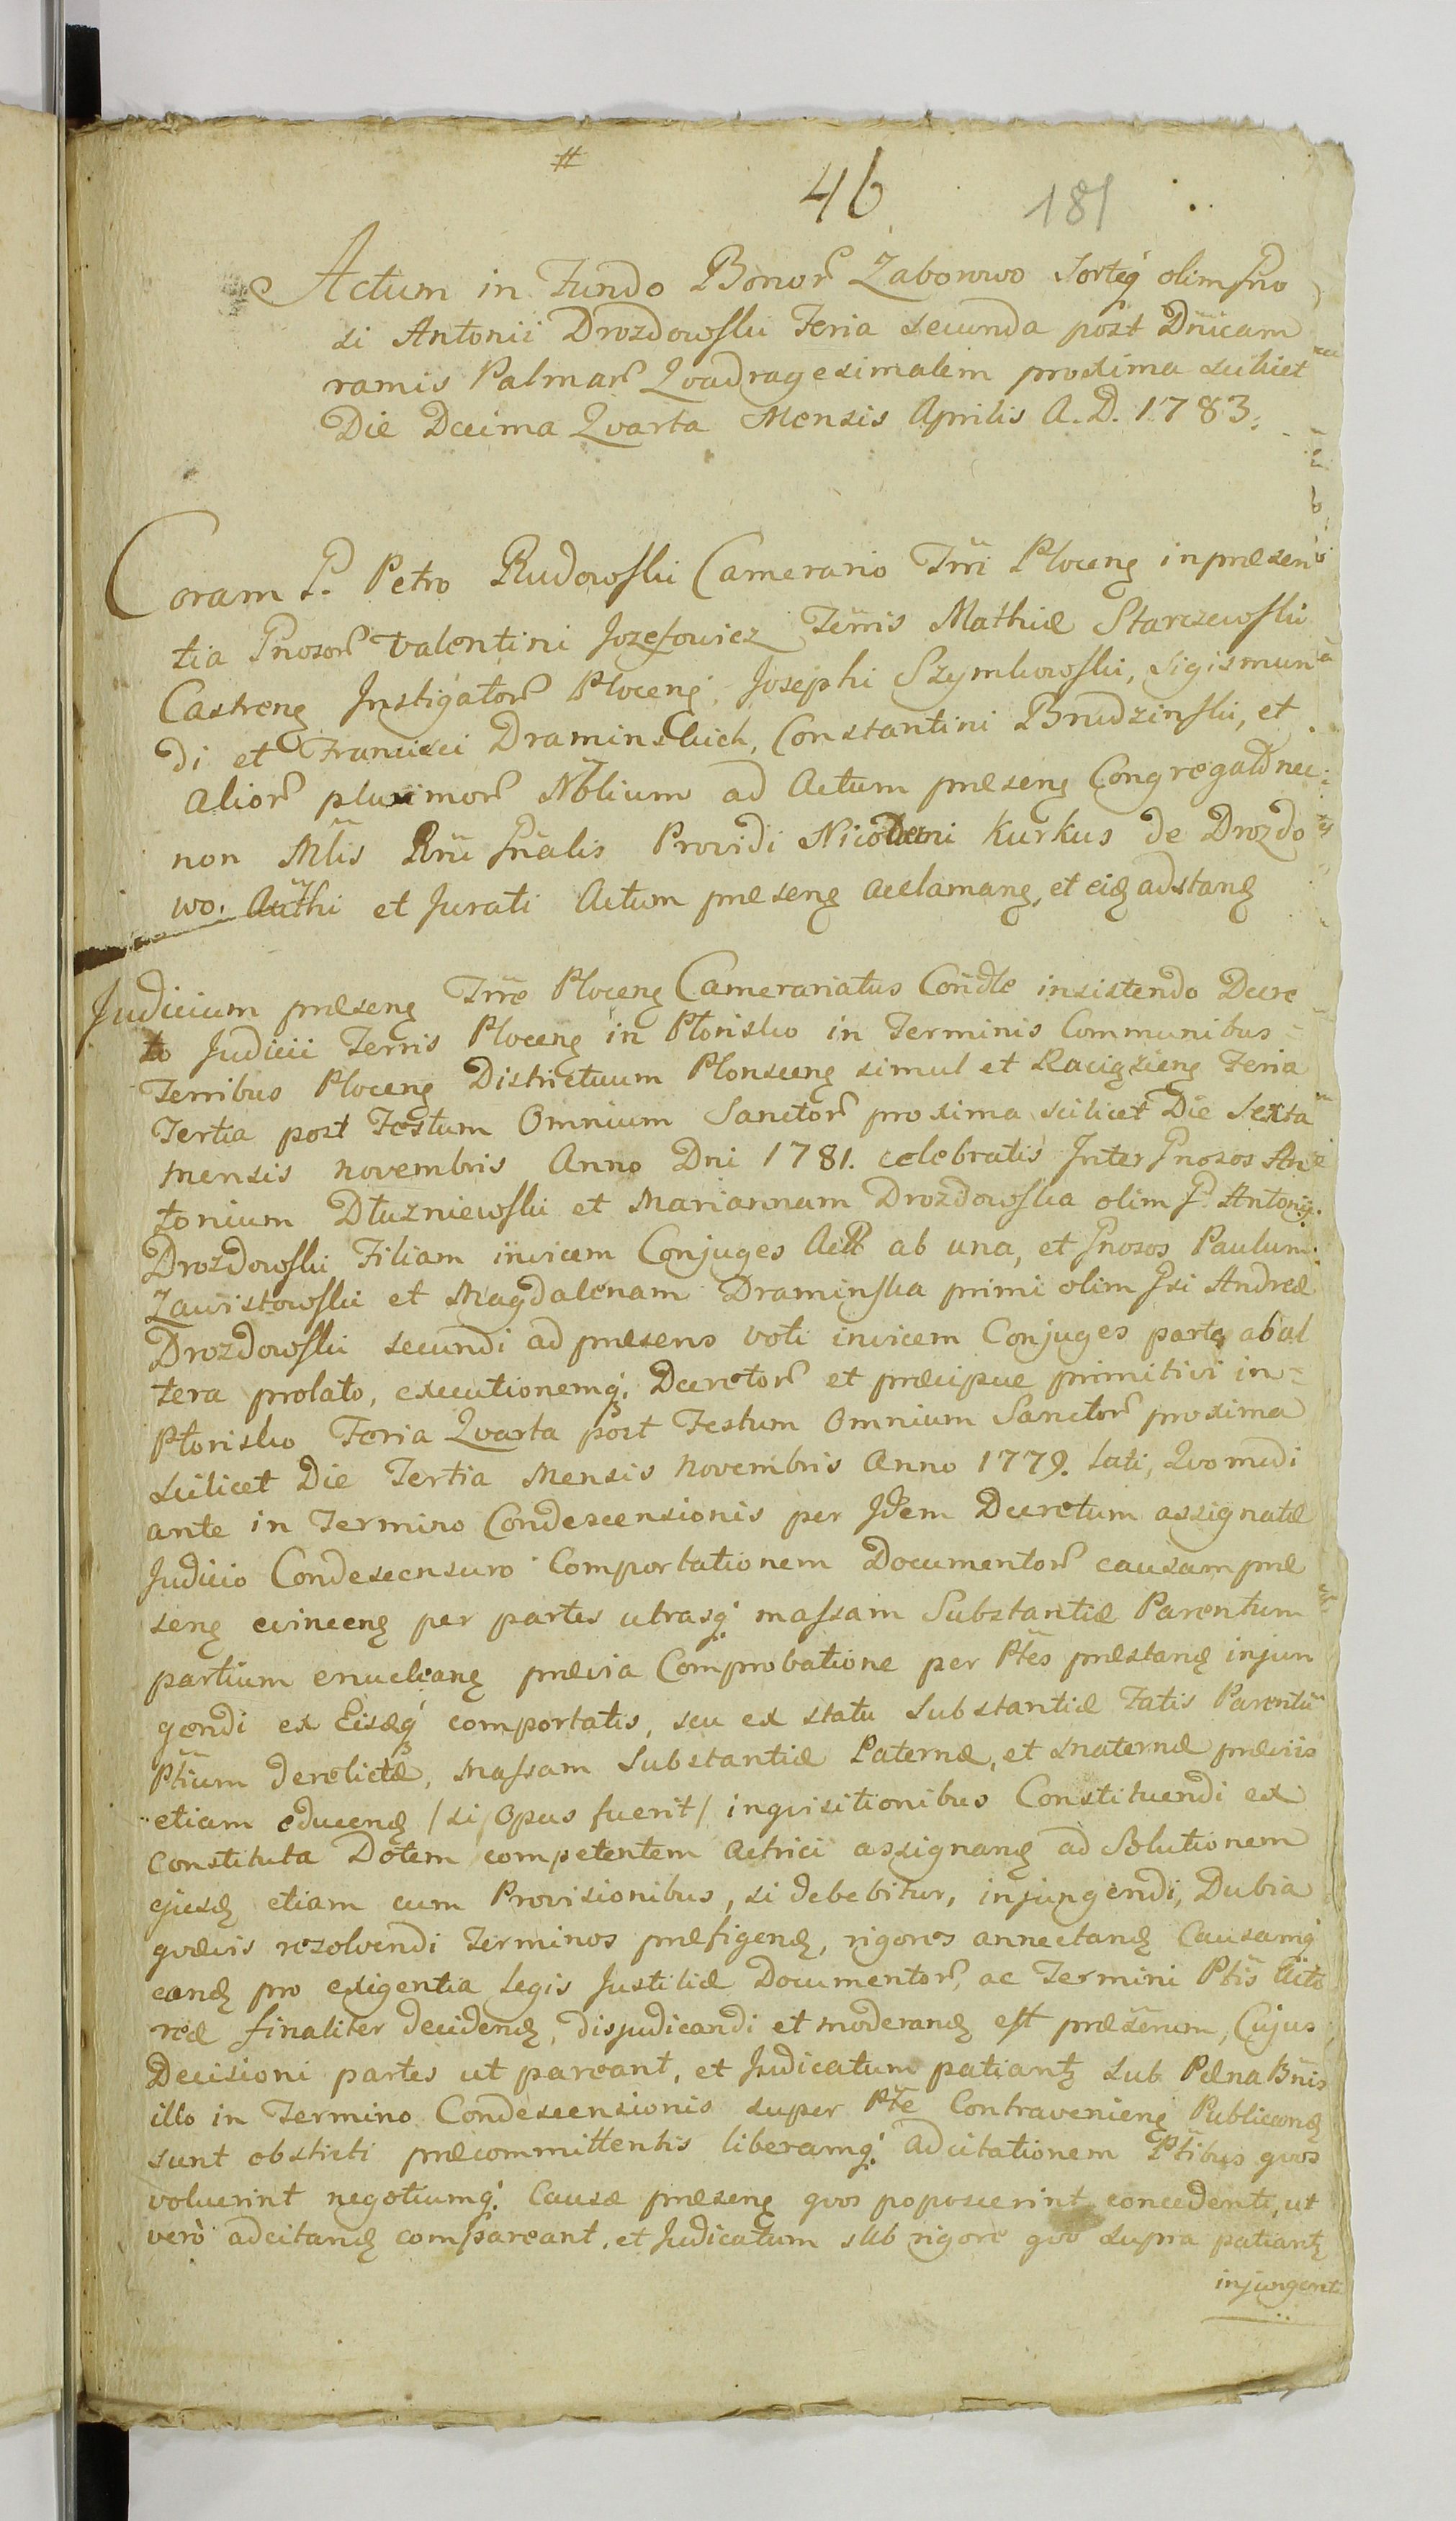 #
46
181
Actum in Fundo Bonor Zaborowo Sorteq olim Gno
si Antonii Drozdowski Feria secunda post Dnicam
ramis Palmar Qvadragesimalem proxima scilicet
Die Decima Qvarta Mensis Aprilis A. D. 1783.
Coram P. Petro Rudowski Camerario Trri Plocenς in præsen
tia Gnosor Valentini Jozefowicz Terris Mathiæ Starczewski
Castrenς Instigator Plocenς, Josephi Szymkowski, Sigismun
di et Francisci Draminskich, Constantini Brudzinski, et
alior plurimor Nblium ad Actum præsenς Congregat nec
non Mlis Rni Gnalis Providi Nicolai Kurkus de Drozdo
wo. Authi et Jurati Actum præsenς acclamanς, et eiς adstanς
Judicium præsenς Trre Plocenς Camerariatus Condle insistendo Decre
to Judicii Terris Plocenς in Plonsko in Terminis Communibus
Terribus Plocenς Districtuum Plonscenς simul et Raciązienς Feria
Tertia post Festum Omnium Sanctor proxima scilicet Die Sexta
mensis novembris Anno Dni 1781. celebratis Inter Gnosos An
tonium Dłuzniewski et Mariannam Drozdowska olim G. Antonij
Drozdowski Filiam invicem Conjuges Act ab una, et Gnosos Paulum
Zawistowski et Magdalenam Draminska primi olim Gsi Andreæ
Drozdowski secundi ad præsens voti invicem Conjuges parte ab al
tera prolato, executionemq, Decretor et præcipue primitivi in
Plonsko Feria Qvarta post Festum Omnium Sanctor proxima
scilicet Die Tertia Mensis Novembris Anno 1779. Lati, Qvo medi
ante in Termino Condescensionis per Idem Decretum assignatæ
Judicio Condescensuro Comportationem Documentor causam præ
senς evincenς per partes utrasq massam Substantiæ Parentum
partium enucleanς prævia Comprobatione per Ptes præstanς injun
gendi ex Eisdq comportatis, seu ex statu substantiæ Fatis Parentu
Ptium derelictæ, massam Substantiæ Paternæ, et maternæ præviis
etiam educenς /si opus fuerit/ inqvisitionibus Constituendi ex
constituta Dotem competentem Actrici assignanς ad Solutionem
ejusς etiam cum Provisionibus, si debebitur, injungendi, Dubia
qvævis resolvendi Terminos præfigenς, rigores annectanς Causamq
eanς pro exigentia Legis Justitiæ Documentor, ac Termini Ptis Acto
reæ finaliter decidenς, disjudicandi et moderanς est præsenum, Cujus
Decisioni partes ut pareant, et Judicatum patiantς sub Pæna Bnis
illo in Termino Condescensionis super Pte Contravenienς Publicanς
sunt obstricti præcommittentis liberamq adcitationem Ptibus qvos
voluerint negotiumq Causæ præsenς qvos poposcerint concedenti, ut
vero adcitanς compareant, et Judicatum sub rigore qvo supra patiantς
injungenti